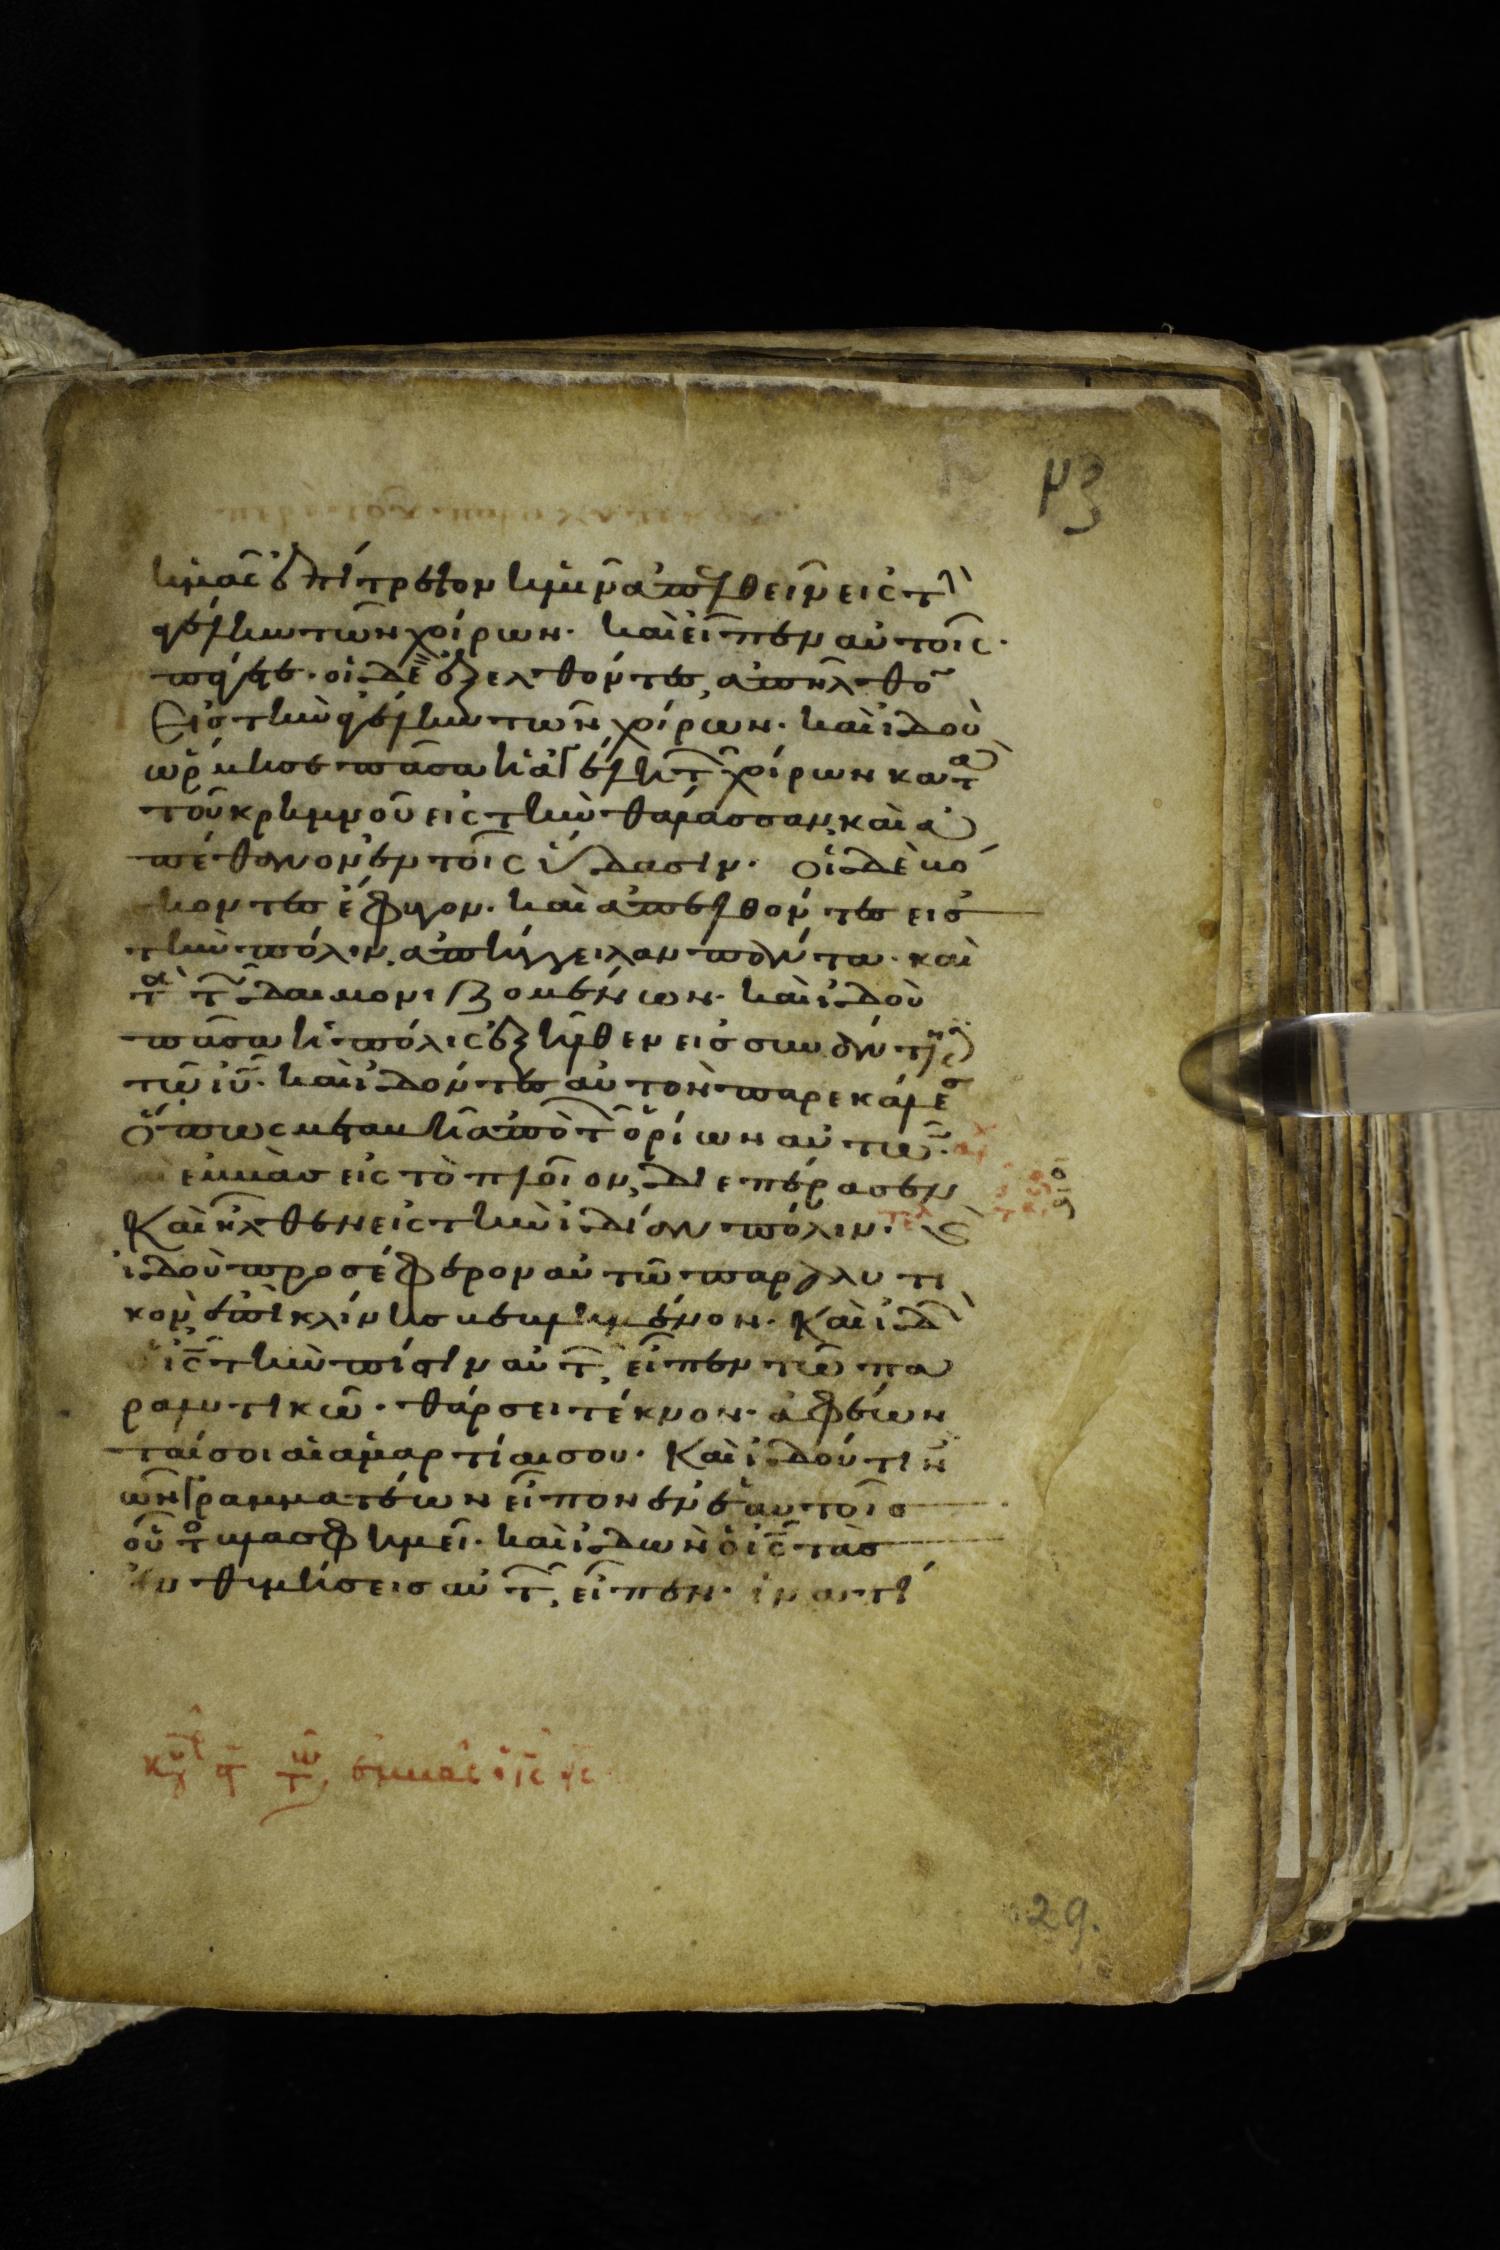 43
ἡμᾶς ἐπίτρεψον ἡμῖν ἀπελθεῖν εἰς τὴ
ἀγέλην τῶν χοίρων· καὶ εἶπεν αὐτοῖς·
ὑπάγετε· οἱ δὲ ἐξελθόντες, ἀπῆλθο̅
εἰς τὴν ἀγέλην τῶν χοίρων· καὶ ἰδοὺ
ὥρμησε πᾶσα ἡ ἀγέλη τῶν χοίρων κατὰ
τοῦ κρημνοῦ εἰς τὴν θάλασσαν, καὶ ἀ
πέθανον ἐν τοῖς ὕδασιν· οἱ δὲ βό
σκοντες ἔφυγον· καὶ ἀπελθόντες εἰς
τὴν πόλιν, ἀπήγγειλαν πάντα· καὶ
τὰ τῶν δαιμονιζομένων· καὶ ἰδοὺ
πᾶσα ἡ πόλις ἐξῆλθεν εἰς συνάντησιν
τῶ ιυ̅· καὶ ἰδόντες αὐτὸν παρεκάλεσ
ὅπως μεταβῆ ἀπὸ τῶν ὁρίων αὐτῶν·
ἐμβὰς εἰς τὸ πλοῖον, διεπέρασεν
Καὶ ἦλθεν εἰς τὴν ἰδίαν πόλιν· τελ καὶ
ἰδοὺ προσέφερον αὐτῶ παραλυτι
κὸν, ἐπὶ κλίνης βεβλημένον· Καὶ ἰδὼ
ὁ ις̅ τὴν πίστιν αὐτῶν, εἶπεν τῶ πα
ραλυτικῶ· θάρσει τέκνον· ἀφέων
ταί σοι αἱ ἁμαρτίαι σου· Καὶ ἰδού τιν
ὲς τῶν γραμματέων εἶπον ἐν ἑαυτοῖς
οὗτος βλασφημεῖ· καὶ ἰδὼν ὁ ις̅ τὰς
ἐνθυμήσεις αὐτῶν, εἶπεν· ἱνατί
ἐμβὰς ὁ ις̅
29.